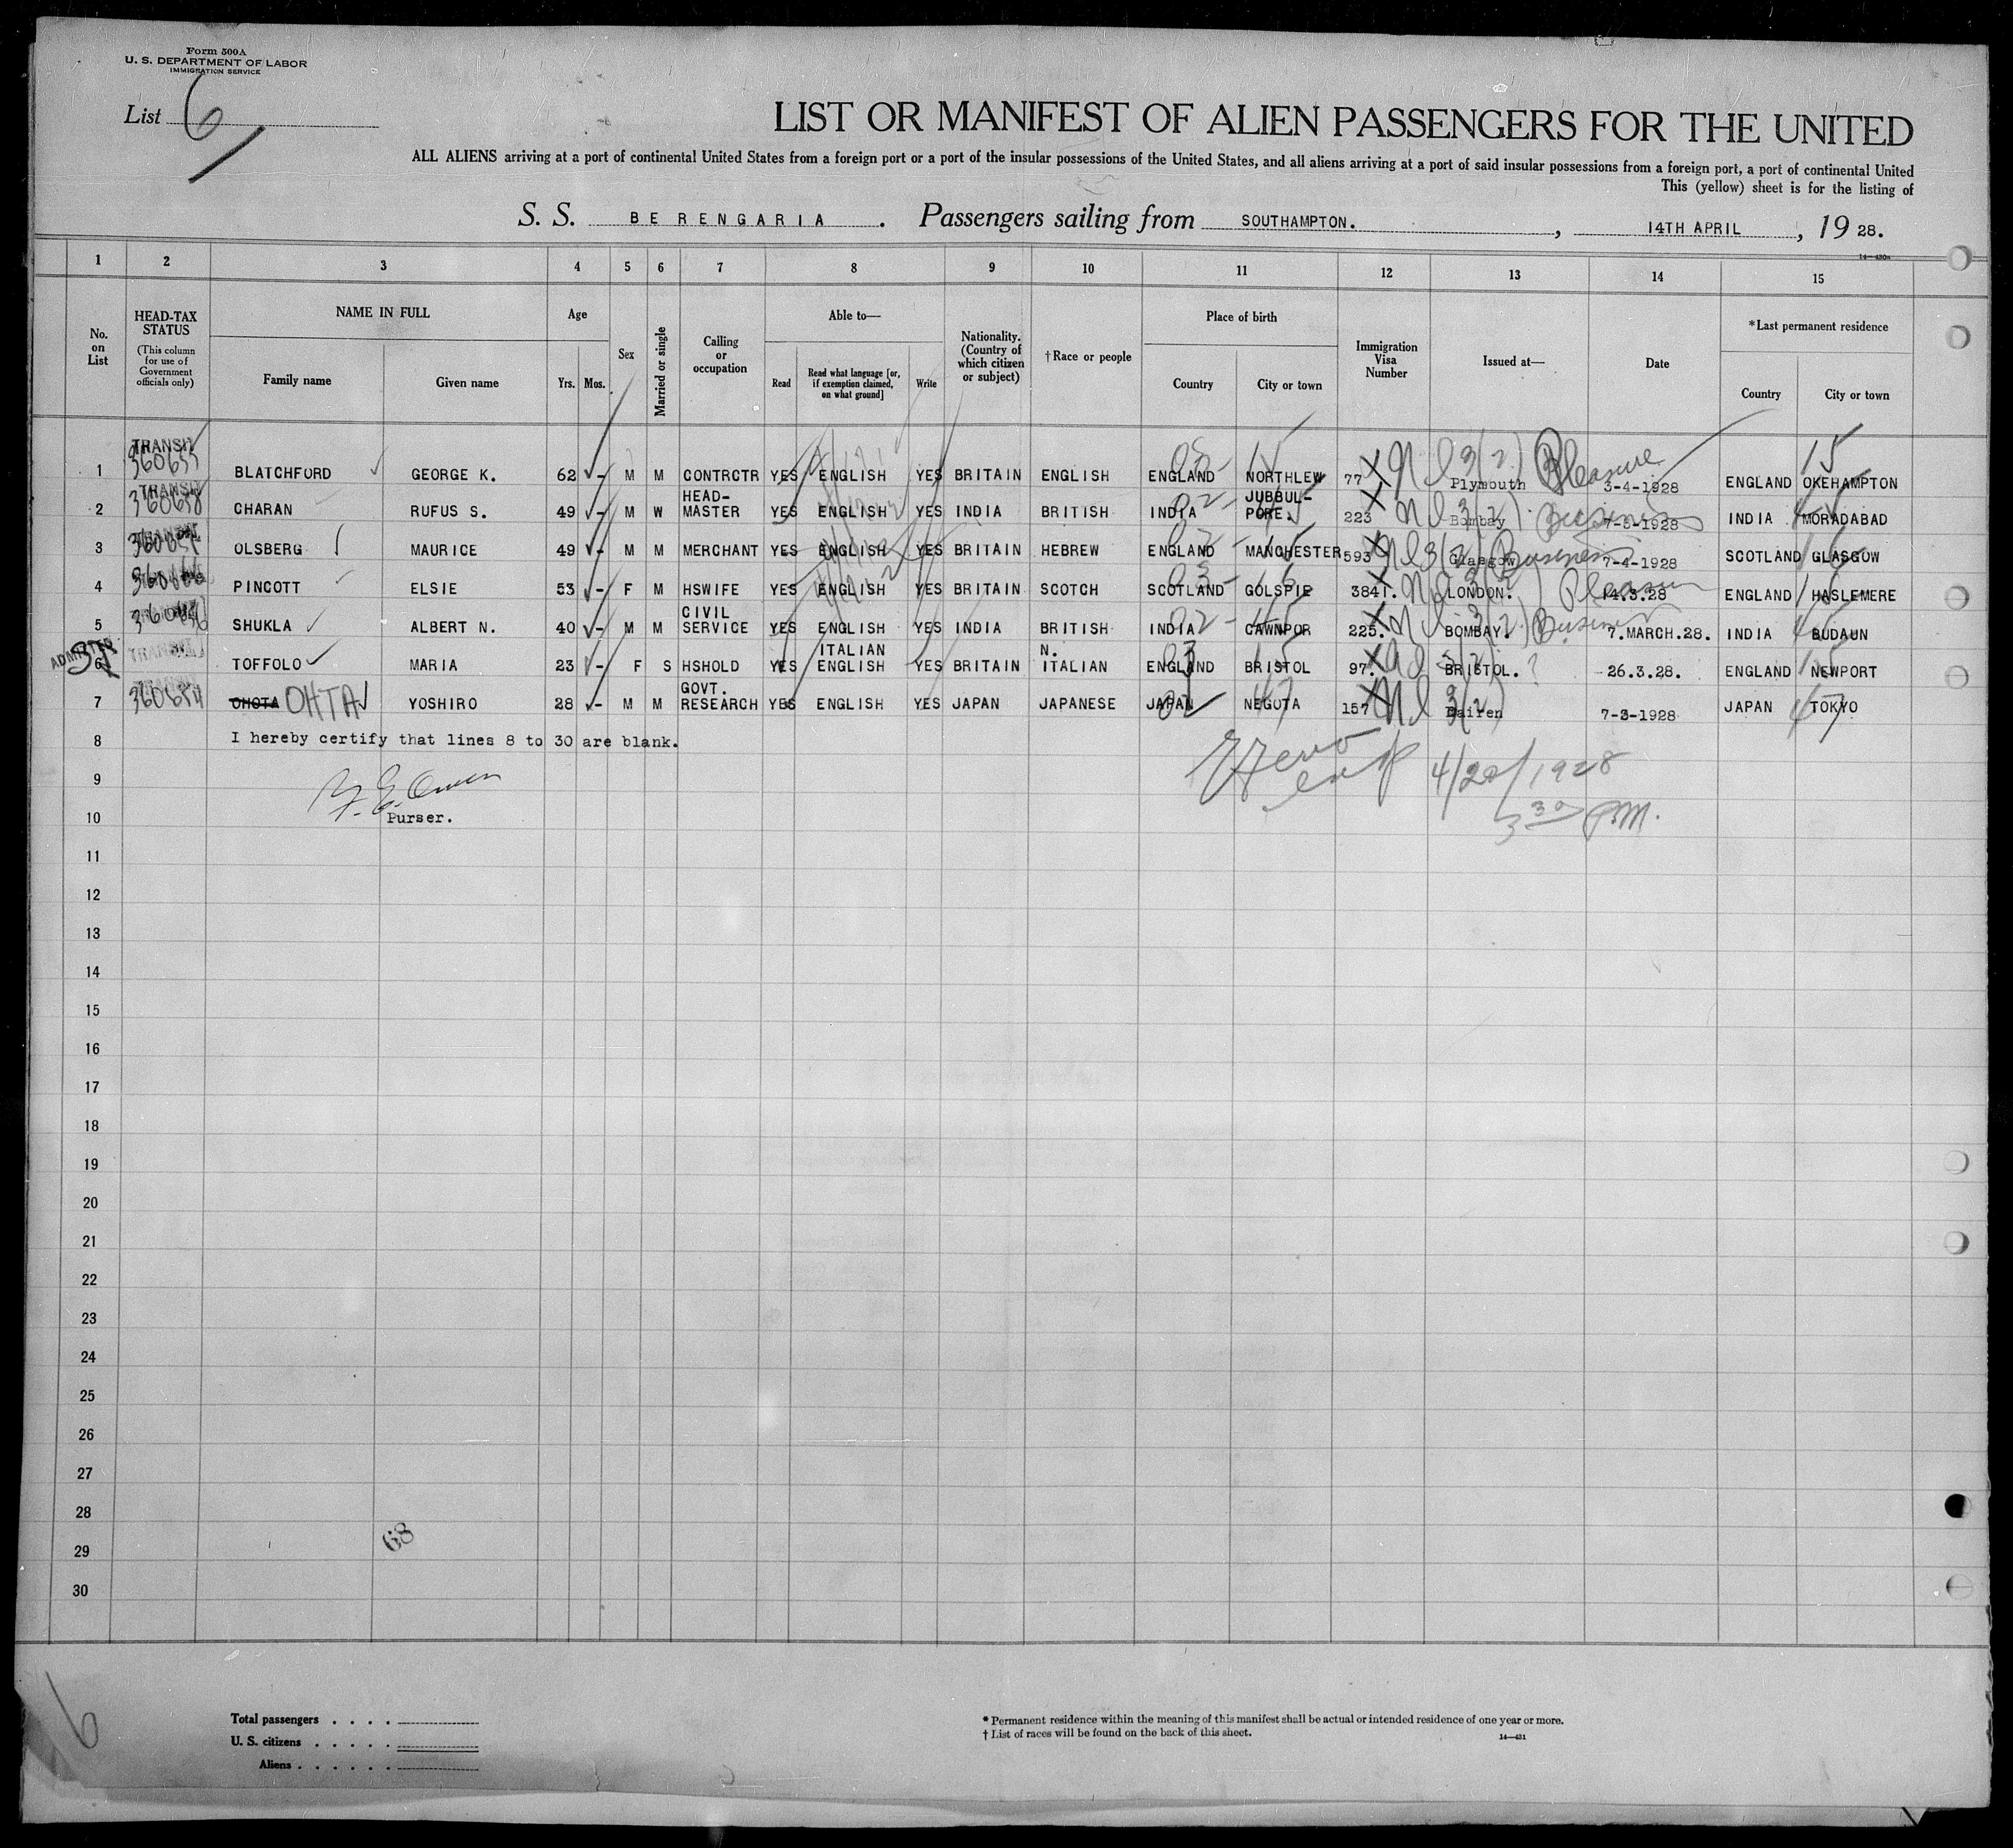 Form 500A
U. S. DEPARTMENT OF LABOR
IMMIGRATION SERVICE
List 6
LIST OR MANIFEST OF ALIEN PASSENGERS FOR THE UNITED
ALL ALIENS arriving at a port of continental United States from a foreign port or a port of the insular possessions of the United States, and all aliens arriving at a port of said insular possessions from a foreign port, a port of continental United
This (yellow) sheet is for the listing of
S. S. BERENGARIA. Passengers sailing from SOUTHAMPTON., 14TH APRIL, 1928.
14—430a
1 2 3 4 5 6 7 8 9 10 11 12 13 14 15
No. on List
HEAD-TAX STATUS
(This column for use of Government officials only)
NAME IN FULL
Family name Given name
Age
Yrs. Mos.
Sex
Married or single
Calling or occupation
Able to—
Read
Read what language [or, if exemption claimed, on what ground]
Write
Nationality. (Country of which citizen or subject)
†Race or people
Place of birth
Country City or town
Immigration Visa Number
Issued at—
Date
*Last permanent residence
Country City or town
1 TRANSIT 360655 BLATCHFORD GEORGE K. 62 - M M CONTRCTR YES ENGLISH YES BRITAIN ENGLISH ENGLAND NORTHLEW 77 Plymouth Pleasure 3-4-1928 ENGLAND OKEHAMPTON 15
2 TRANSIT 360658 CHARAN RUFUS S. 49 - M W HEAD-MASTER YES ENGLISH YES INDIA BRITISH INDIA JUBBUL-PORE. 223 Bombay Business 1928 INDIA MORADABAD
3 OLSBERG MAURICE 49 - M M MERCHANT YES ENGLISH YES BRITAIN HEBREW ENGLAND MANCHESTER 593 Glasgow Business 7-4-1928 SCOTLAND GLASGOW
4 PINCOTT ELSIE 53 - F M HSWIFE YES ENGLISH YES BRITAIN SCOTCH SCOTLAND GOLSPIE 3841. LONDON. Pleasure 14.3.28 ENGLAND HASLEMERE
5 SHUKLA ALBERT N. 40 - M M CIVIL SERVICE YES ENGLISH YES INDIA BRITISH INDIA CAWNPOR 225. BOMBAY. Business 7.MARCH.28. INDIA BUDAUN
ADMITTED
6 TRANSIT TOFFOLO MARIA 23 - F S HSHOLD YES ITALIAN ENGLISH YES BRITAIN N. ITALIAN ENGLAND BRISTOL 97. BRISTOL. ? 26.3.28. ENGLAND NEWPORT
7 360654 OHOTA OHTA YOSHIRO 28 - M M GOVT. RESEARCH YES ENGLISH YES JAPAN JAPANESE JAPAN NEGOTA 157 Dairen 7-3-1928 JAPAN TOKYO
8 I hereby certify that lines 8 to 30 are blank.
9
4/20/1928
3 30 P.M.
10 Purser.
11
12
13
14
15
16
17
18
19
20
21
22
23
24
25
26
27
28
68
29
30
6
Total passengers . . . .
U. S. citizens . . . . .
Aliens . . . . . .
* Permanent residence within the meaning of this manifest shall be actual or intended residence of one year or more.
† List of races will be found on the back of this sheet.
14—431